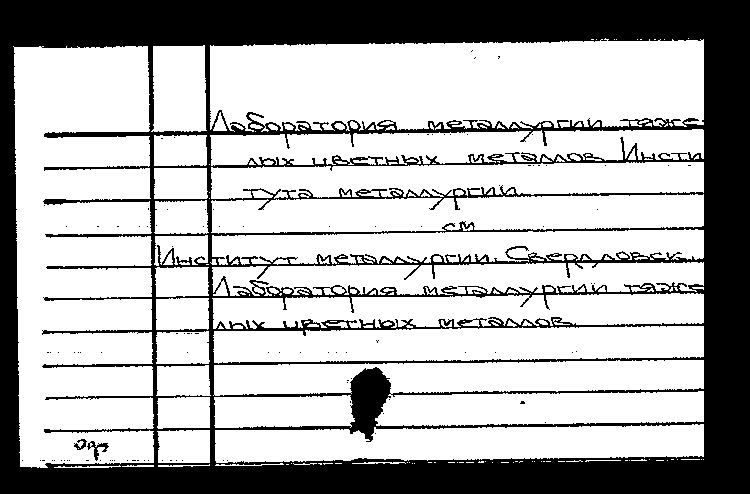 Лаборатория металлургии тяже-
лых цветных металлов Инсти
тута металлургии
см
Институт металлургии. Свердловск.
Лаборатория металлургии тяже
лых цветных металлов